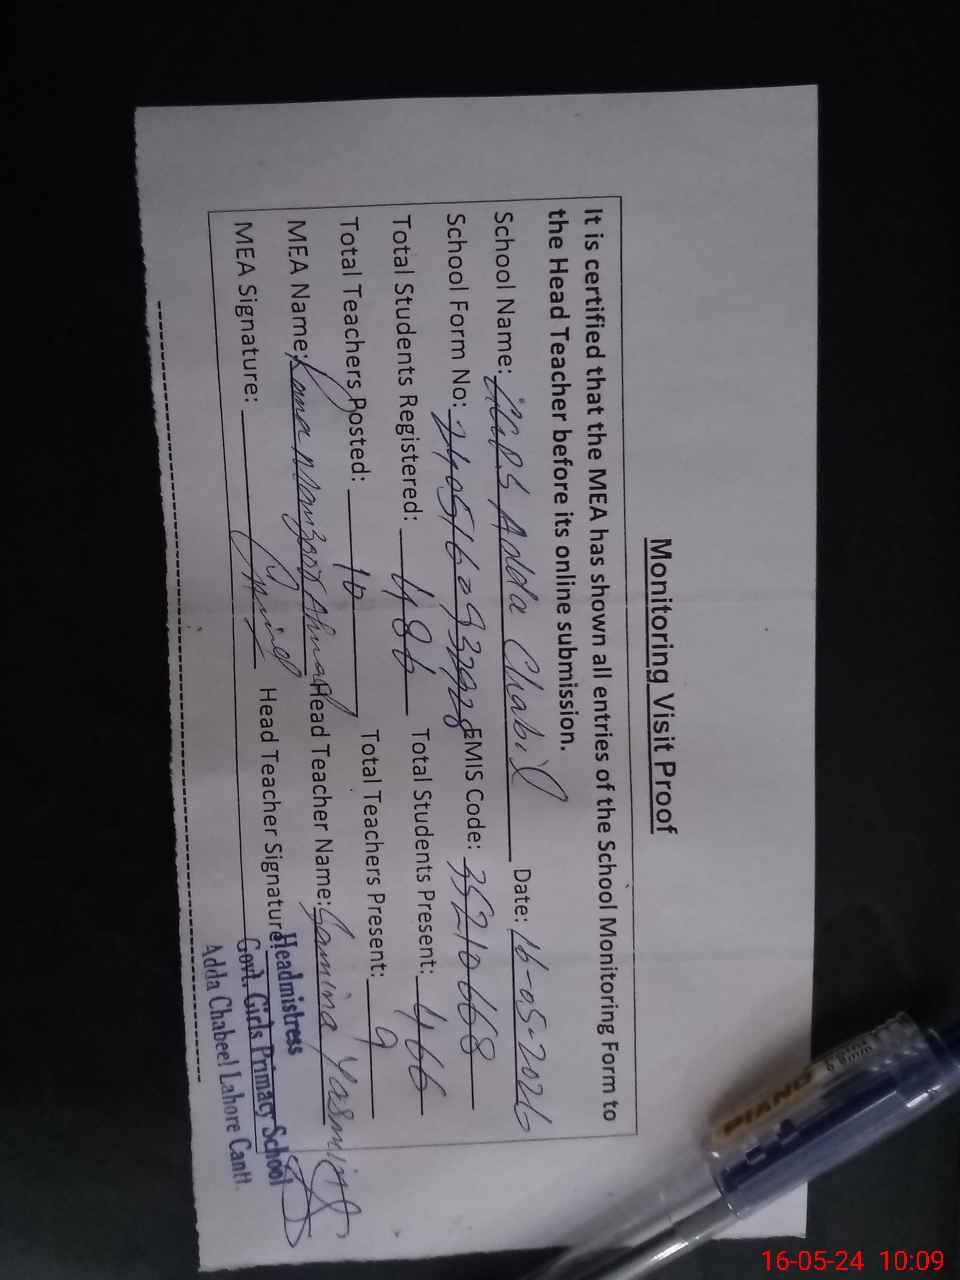 Monitoring Visit Proof
It is certified that the MEA has shown all entries of the School Monitoring Form to
the Head Teacher before its online submission.
School Name: GGPS Adda Chabil Date: 16-05-2026
School Form No: EMIS Code: 35210668
Total Students Registered: 486 Total Students Present: 466
Total Teachers Posted: 10 Total Teachers Present: 9
MEA Name: Rana Manzoor Ahmad Head Teacher Name: Samina Yasmin
MEA Signature: Head Teacher Signature:
Headmistress
Govt. Girls Primary School
Adda Chabeel Lahore Cantt.
PIANO
0.8mm
16-05-24 10:09